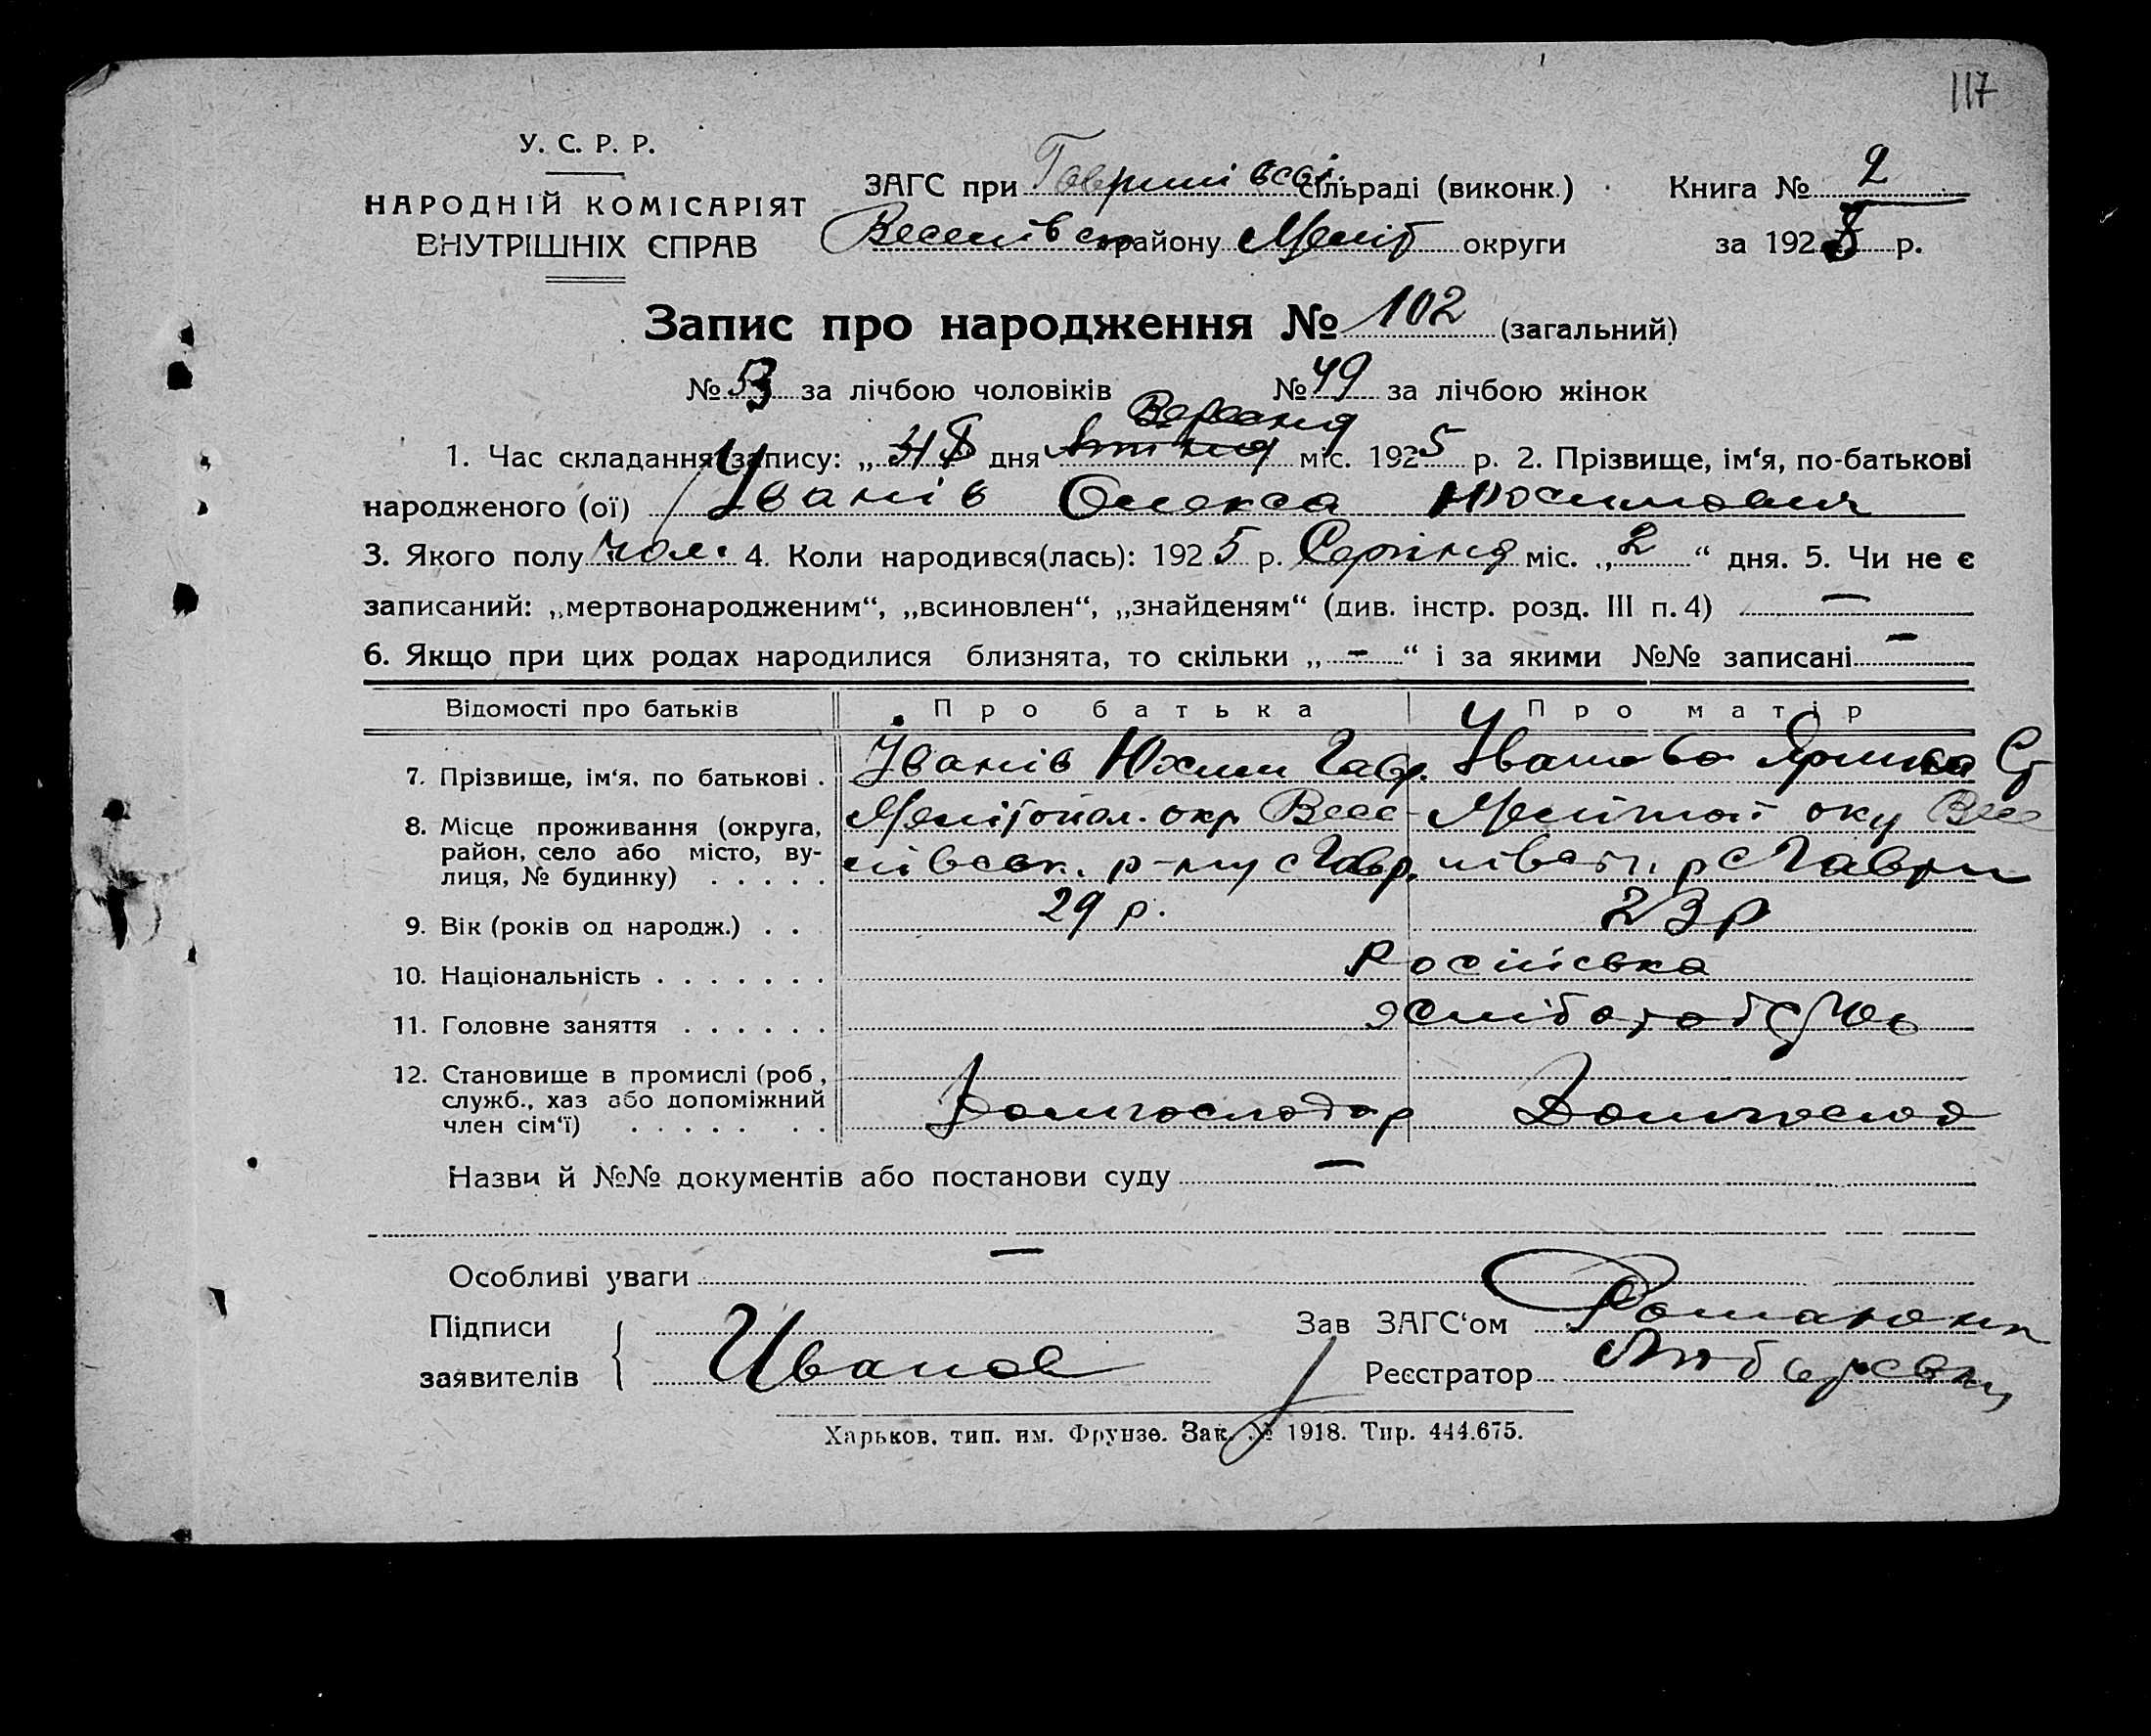 117
У. С. Р. Р.
НАРОДНІЙ КОМІСАРІЯТ
ВНУТРІШНІХ СПРАВ
ЗАГС при сільраді (виконк.)
району Меліт округи
Книга № 2
за 192 р.
Запис про народження № 102 (загальний)
№ 53 за лічбою чоловіків № 49 за лічбою жінок
Вересня
1. Час складання запису: „ дня міс. 1925 р. 2. Прізвище, ім‘я, по-батькові
народженого (ої) Іванів Олекса Юхимович
3. Якого полу чол. 4. Коли народився(лась): 1925 р. Серпня міс. „2“ дня. 5. Чи не є
записаний: „мертвонародженим“, „всиновлен“, „знайденям“ (див. інстр. розд. III п. 4) —
6. Якщо при цих родах народилися близнята, то скільки „-“ і за якими №№ записані —
Відомості про батьків Про батька Про матір
7. Прізвище, ім‘я, по батькові . Іванів Юхим Гавр. Іванова Ярина
8. Місце проживання (округа, Мелітопол. окр Весе- Весе
район, село або місто, ву- лівськ. р-ну с Гавр. р с Гаври
лиця, № будинку) . . . . .
9. Вік (років од народж.) . . 29 р. 23 р
10. Національність . . . . . . . Російська
11. Головне заняття . . . . . .
12. Становище в промислі (роб.,
служб., хаз або допоміжний Домгосподар Домгоспод
член сім‘ї) . . . . . . .
Назви й №№ документів або постанови суду —
Особливі уваги —
Підписи
заявителів Иванов
Зав ЗАГС‘ом
Реєстратор
Харьков, тип. им. Фрунзе. Зак. № 1918. Тир. 444.675.